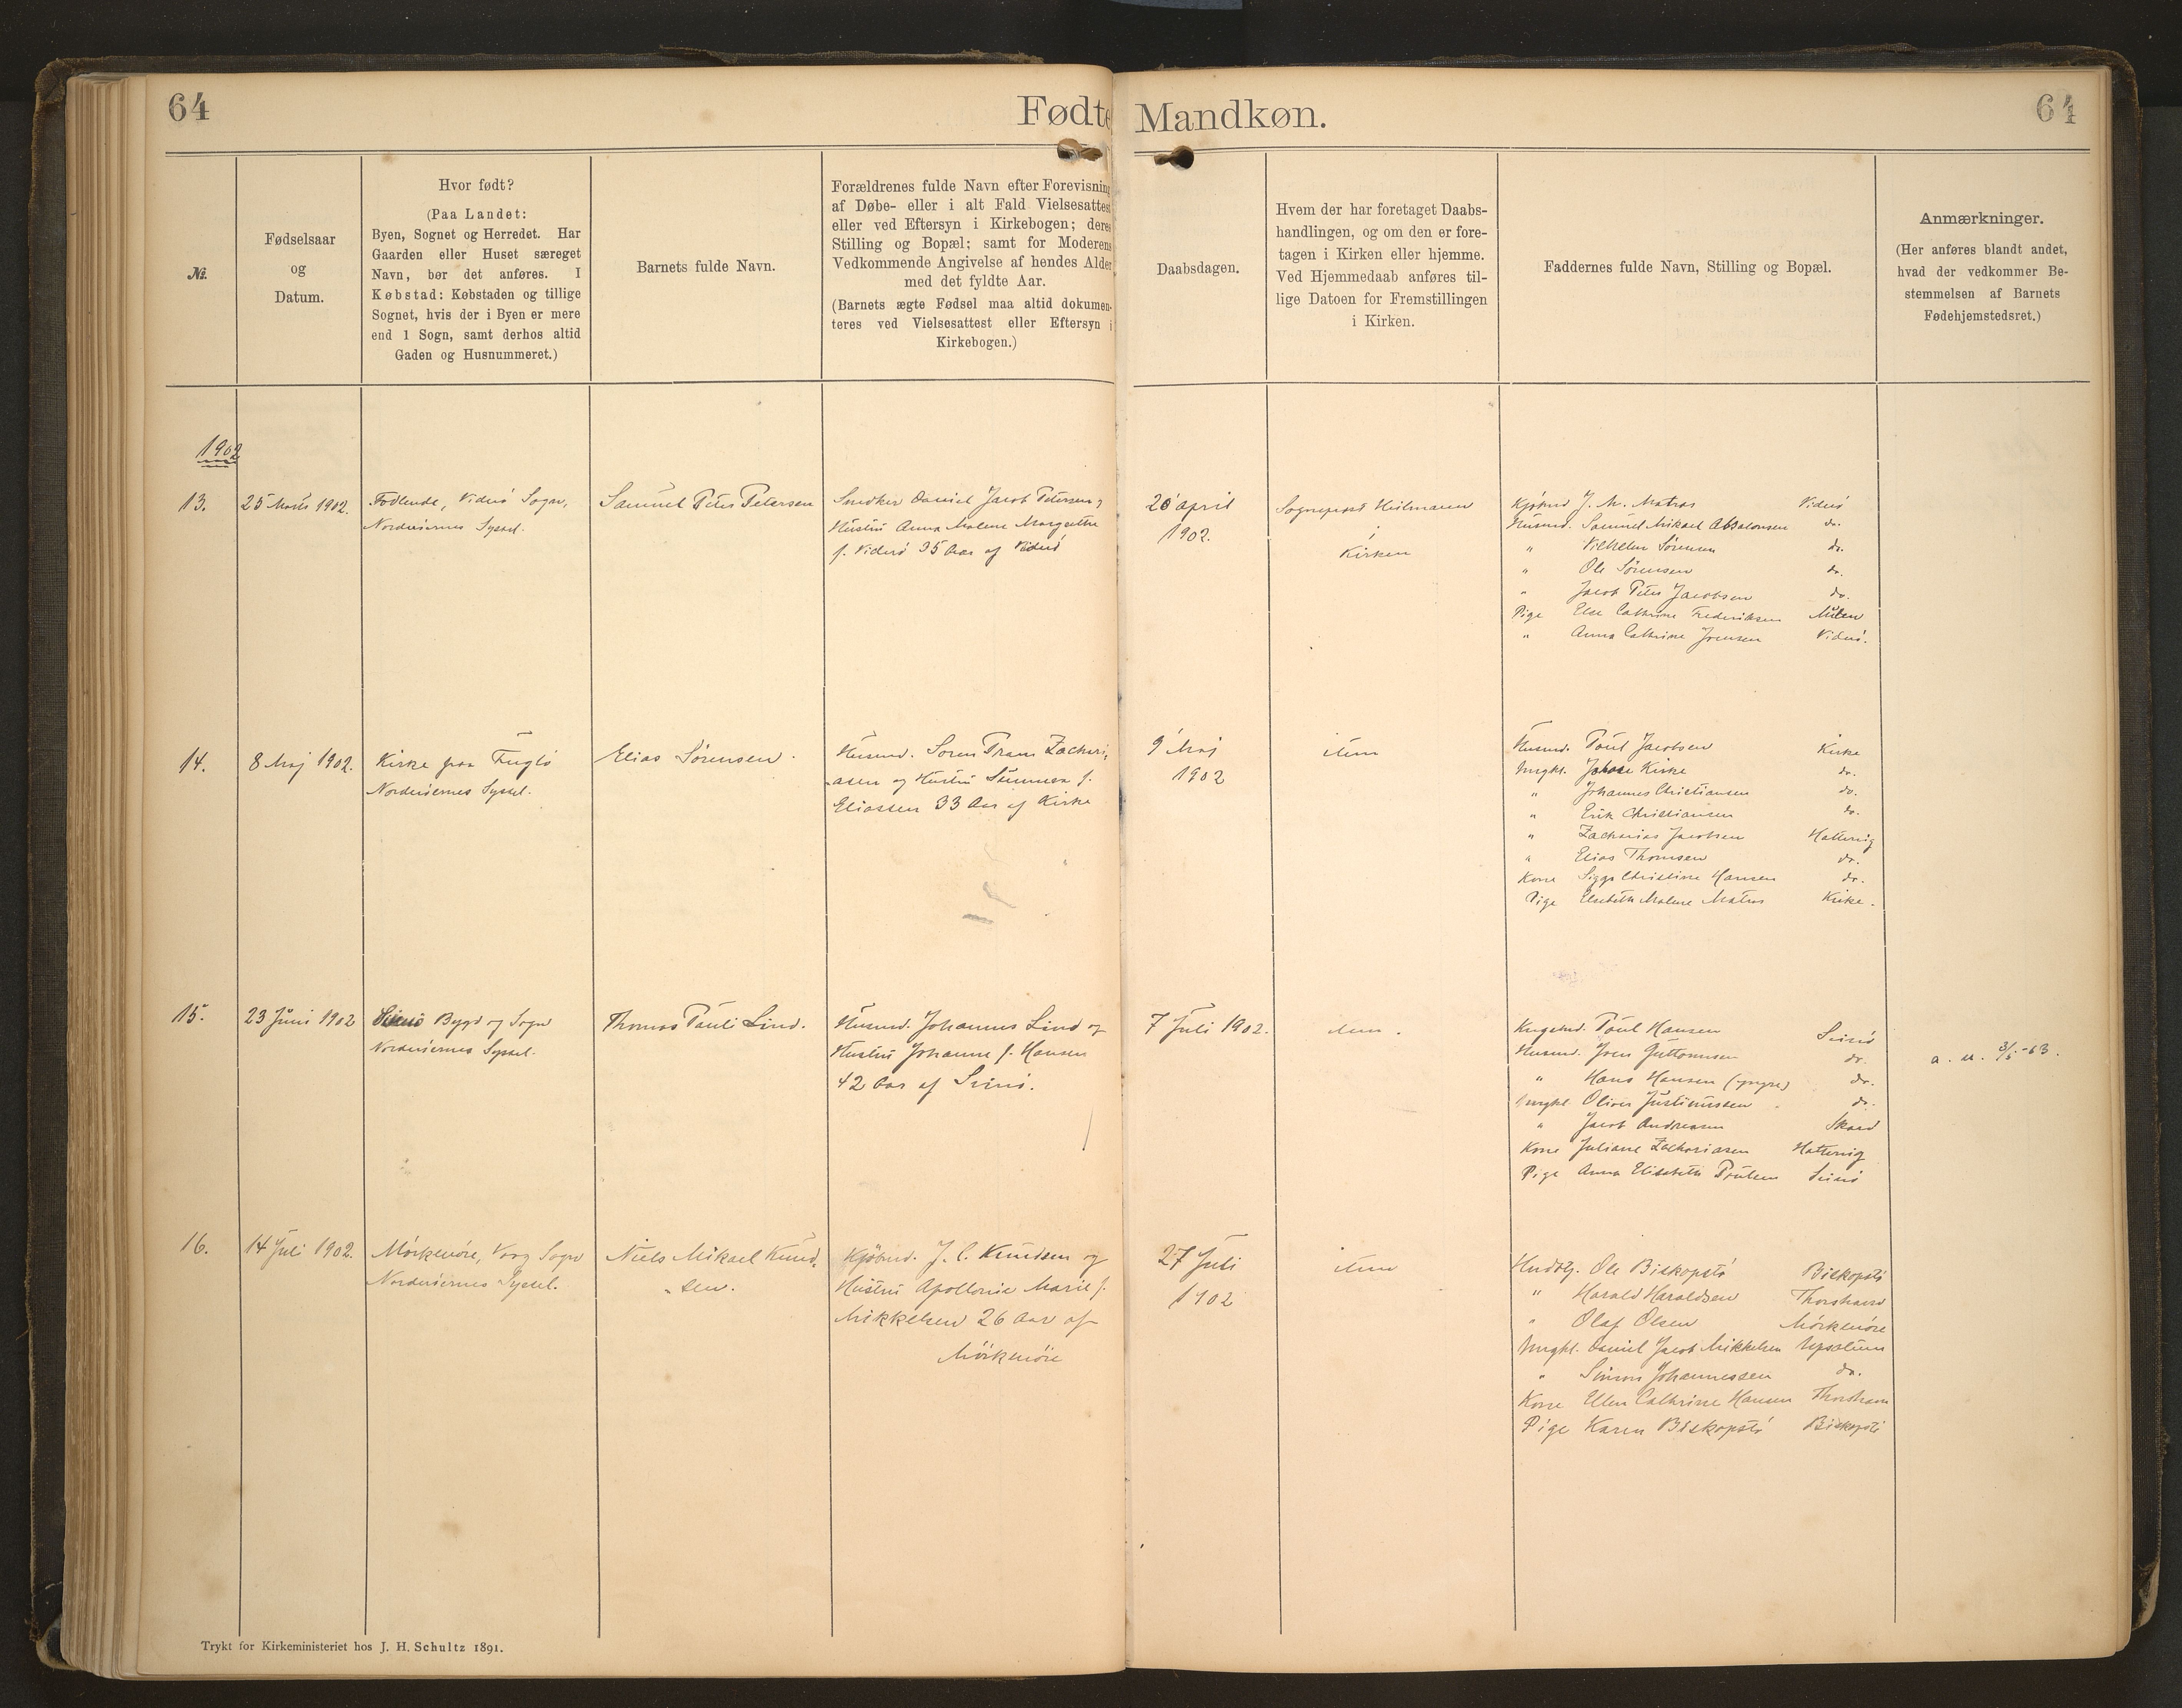 64
Fødte
Mandkøn.
64
№.
Fødselsaar
og
Datum.
Hvor født?
(Paa Landet:
Byen, Sognet og Herredet. Har
Gaarden eller Huset særeget
Navn, bør det anføres. I
Købstad: Købstaden og tillige
Sognet, hvis der i Byen er mere
end 1 Sogn, samt derhos altid
Gaden og Husnummeret.)
Barnets fulde Navn.
Forældrenes fulde Navn efter Forevisning
af Døbe- eller i alt Fald Vielsesattest
eller ved Eftersyn i Kirkebogen; deres
Stilling og Bopæl; samt for Moderens
Vedkommende Angivelse af hendes Alder
med det fyldte Aar.
(Barnets ægte Fødsel maa altid dokumen-
teres ved Vielsesattest eller Eftersyn i
Kirkebogen.)
Daabsdagen.
Hvem der har foretaget Daabs-
handlingen, og om den er fore-
tagen i Kirken eller hjemme.
Ved Hjemmedaab anføres til-
lige Datoen for Fremstillingen
i Kirken.
Faddernes fulde Navn, Stilling og Bopæl.
Anmærkninger.
(Her anføres blandt andet,
hvad der vedkommer Be-
stemmelsen af Barnets
Fødehjemstedsret.)
1902
13.
25 Marts 1902.
Viderö Sogn,
Norderöernes Syssel.
Samuel Peter Petersen
Snedker Daniel Jacob Petersen og
Hustru Anna Malene Margrethe
f. Viderö 35 Aar af Viderö
20 april
1902.
Sognepræst Heilmann
i
Kirken
Kjöbmd J. M. Matras Viderö
Husmd. Samuel Mikael Absalonsen do.
" Vilhelm Sörensen do.
" Ole Sörensen do.
" Jacob Peter Jacobsen do.
Pige Else Cathrine Frederiksen
" Anna Cathrine Joensen Viderö.
14.
8 Maj 1902.
Kirke paa Fuglö
Norderöernes Syssel.
Elias Sörensen.
Husmd. Soren Frans Zachari-
asen og Hustru Sunneva f.
Eliassen 33 Aar af Kirke
9 Maj
1902
idem
Husmd. Poul Jacobsen Kirke
Ungkl. Kirke do.
" Johannes Christiansen do.
" Erik Christiansen do.
" Zacharias Jacobsen Hattervig
" Elias Thomsen do.
Kone Christine Hansen do.
Pige Elsebeth Malene Matras Kirke.
15.
23 Juni 1902
Svinö Bygd og Sogn
Norderöernes Syssel.
Thomas Pauli Lind.
Husmd. Johannes Lind og
Hustru Johanne f. Hansen
42 Aar af Svinö.
7 Juli 1902.
idem.
Poul Hansen Svinö
Husmd. Joen Guttormsen do.
" Hans Hansen (yngre) do.
Ungkl. Oliver Justinussen do.
" Jacob Andreasen Skaed
Kone Juliane Zachariasen Hattervig
Pige Anna Elisabeth Poulsen Svinö
a. u. 3/5-63.
16.
14 Juli 1902.
Mörkenöre, Vaag Sogn
Norderöernes Syssel.
Niels Mikael Knud-
sen.
Kjöbmd. J. C. Knudsen og
Hustru Apollonie Marie f.
Mikkelsen 26 Aar af
Mörkenöre
27 Juli
1902
idem
Ole Biskopstö Biskopstö
" Harald Haraldsen Thorshavn
" Olaf Olsen Mörkenöre
Ungkl. Daniel Jacob Mikkelsen Upsalum
" Simon Johannessen do.
Kone Ellen Cathrine Hansen Thorshavn
Pige Karen Biskopstö Biskopstö
Trykt for Kirkeministeriet hos J. H. Schultz 1891.